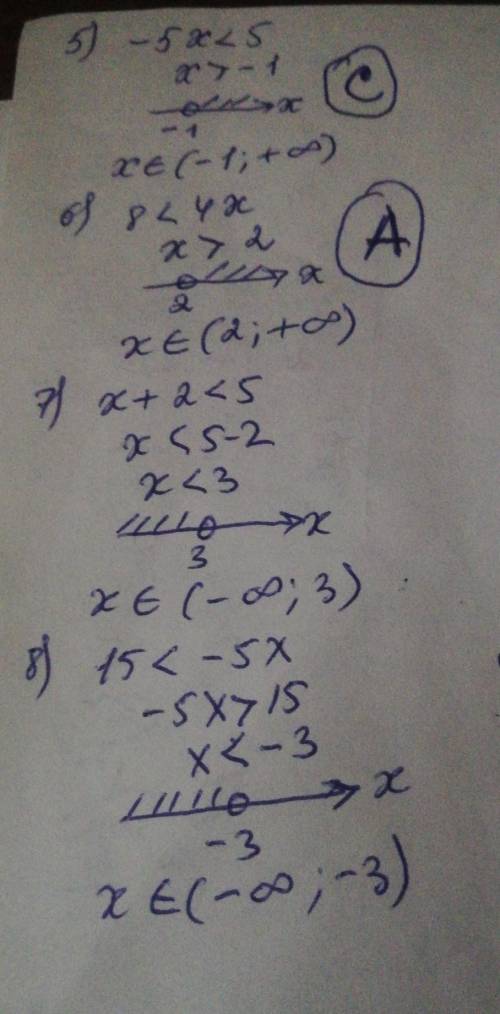 5) -5x<5
x>-1
C
x
-1
x∈(-1;+∞)
6) 8<4x
x>2
A
x
2
x∈(2;+∞)
7) x+2<5
x<5-2
x<3
x
3
x∈(-∞;3)
8) 15<-5x
-5x>15
x<-3
x
-3
x∈(-∞;-3)